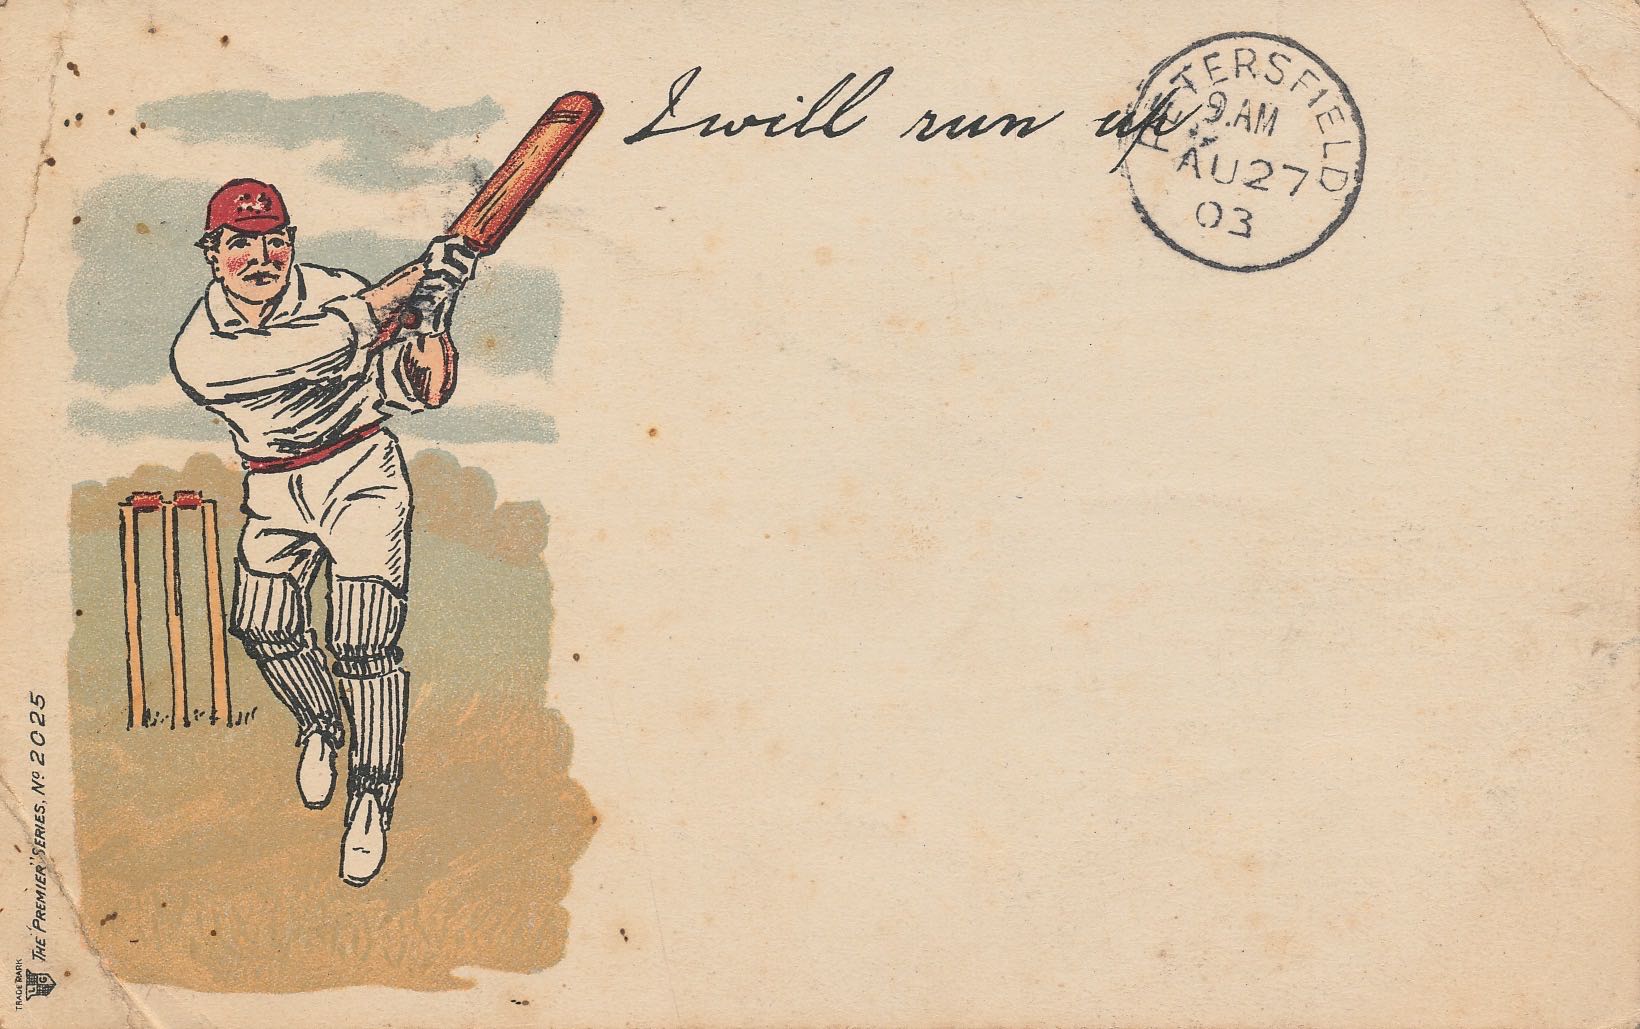 I will run up
PETERSFIELD
9. AM
AU 27
03
THE "PREMIER" SERIES, No 2025
TRADE MARK
L G